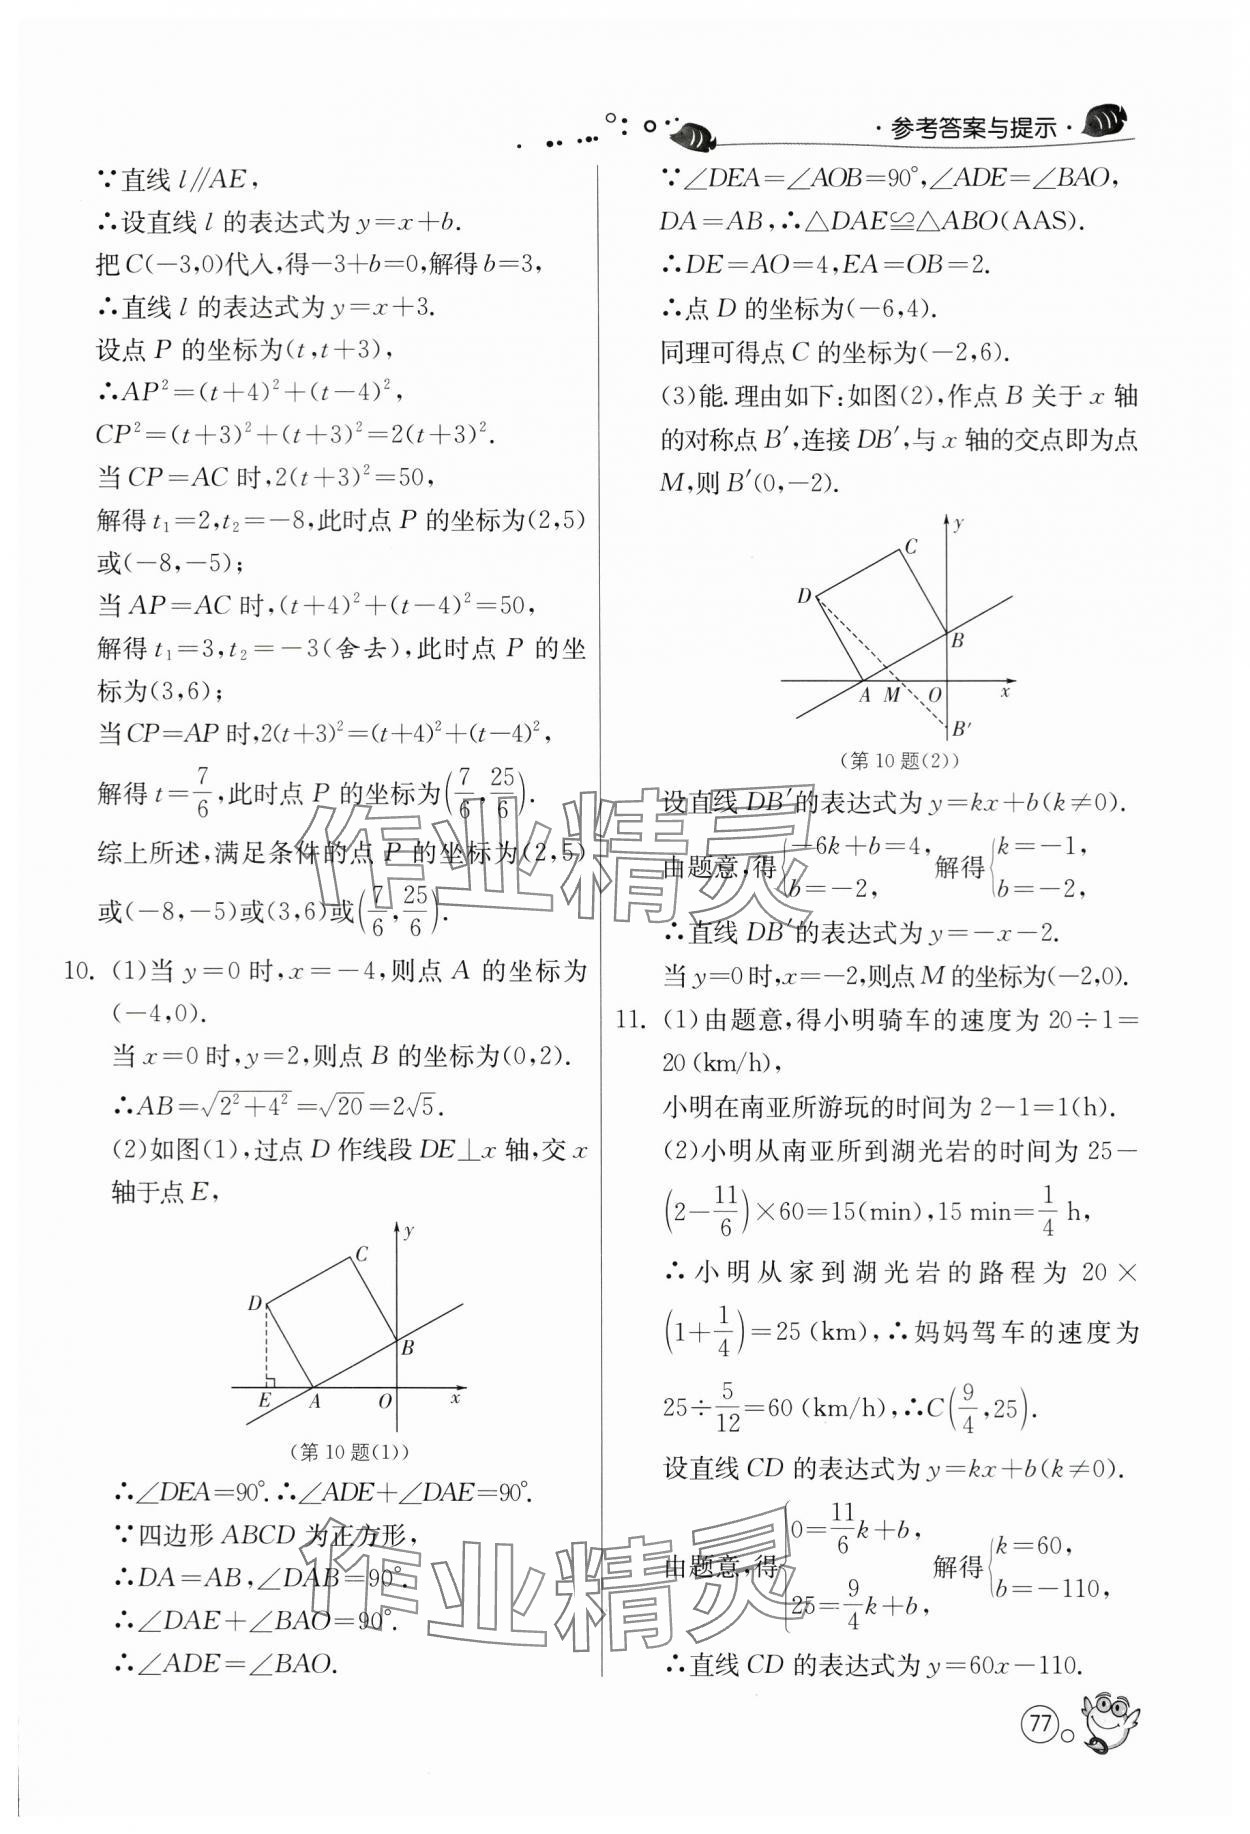 ·参考答案与提示·
∵直线 l∥AE，
∴设直线 l 的表达式为 y=x+b.
把 C(-3,0)代入,得-3+b=0,解得 b=3,
∴直线 l 的表达式为 y=x+3.
设点 P 的坐标为(t,t+3),
∴AP²=(t+4)²+(t-4)²,
CP²=(t+3)²+(t+3)²=2(t+3)².
当 CP=AC 时,2(t+3)²=50,
解得 t₁=2,t₂=-8,此时点 P 的坐标为(2,5)
或(-8,-5);
当 AP=AC 时,(t+4)²+(t-4)²=50,
解得 t₁=3,t₂=-3(舍去),此时点 P 的坐
标为(3,6);
当 CP=AP 时,2(t+3)²=(t+4)²+(t-4)²,
解得 t=7/6,此时点 P 的坐标为(7/6,25/6).
综上所述,满足条件的点 P 的坐标为(2,5)
或(-8,-5)或(3,6)或(7/6,25/6).
10. (1)当 y=0 时,x=-4,则点 A 的坐标为
(-4,0).
当 x=0 时,y=2,则点 B 的坐标为(0,2).
∴AB=√(2²+4²)=√20=2√5.
(2)如图(1),过点 D 作线段 DE⊥x 轴,交 x
轴于点 E,
y
C
D
B
E
A
O
x
(第 10 题(1))
∴∠DEA=90°.∴∠ADE+∠DAE=90°.
∵四边形 ABCD 为正方形,
∴DA=AB,∠DAB=90°.
∴∠DAE+∠BAO=90°.
∴∠ADE=∠BAO.
∵∠DEA=∠AOB=90°,∠ADE=∠BAO,
DA=AB,∴△DAE≌△ABO(AAS).
∴DE=AO=4,EA=OB=2.
∴点 D 的坐标为(-6,4).
同理可得点 C 的坐标为(-2,6).
(3)能.理由如下:如图(2),作点 B 关于 x 轴
的对称点 B′,连接 DB′,与 x 轴的交点即为点
M,则 B′(0,-2).
y
C
D
B
A
M
O
x
B′
(第 10 题(2))
设直线 DB′的表达式为 y=kx+b(k≠0).
由题意,得{-6k+b=4, b=-2, 解得{k=-1, b=-2,
∴直线 DB′的表达式为 y=-x-2.
当 y=0 时,x=-2,则点 M 的坐标为(-2,0).
11. (1)由题意,得小明骑车的速度为 20÷1=
20 (km/h),
小明在南亚所游玩的时间为 2-1=1(h).
(2)小明从南亚所到湖光岩的时间为 25-
(2-11/6)×60=15(min),15 min=1/4 h,
∴小明从家到湖光岩的路程为 20×
(1+1/4)=25 (km),∴妈妈驾车的速度为
25÷5/12=60 (km/h),∴C(9/4,25).
设直线 CD 的表达式为 y=kx+b(k≠0).
由题意,得{0=11/6k+b, 25=9/4k+b, 解得{k=60, b=-110,
∴直线 CD 的表达式为 y=60x-110.
77
作业精灵
作业精灵